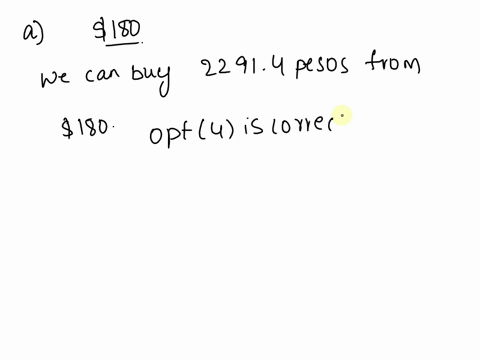 a) $180.
we can buy 2291.4 pesos from
$180. opt(4) is correc